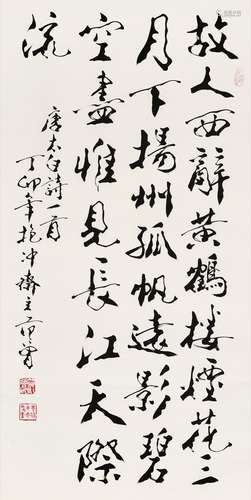 故人西辭黃鶴樓煙花三
月下揚州孤帆遠影碧
空盡惟見長江天際
流
唐太白詩一首
丁卯年抱冲齋主范曾